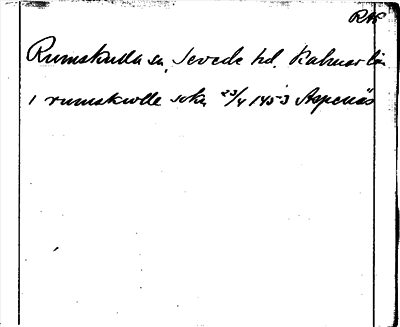 RAP
Rumskulla sn, Sevede hd. Kalmar län
i rumskwlle sokn 23/4 1453 Aspenäs